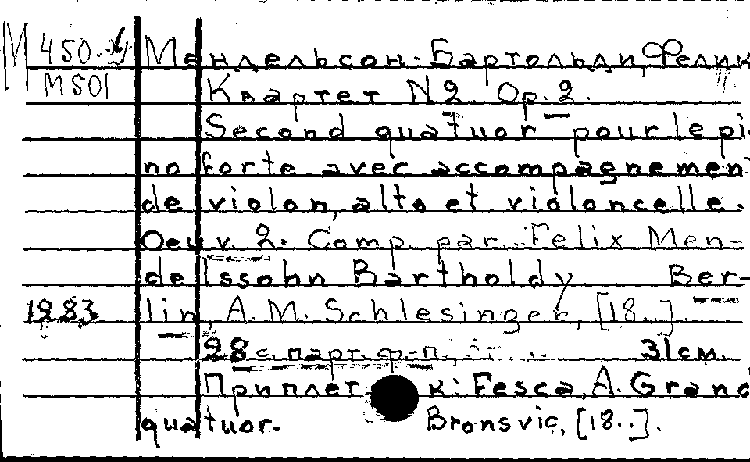 М 450. Мендельсон-Бартольди, Фелик
М501 Квартет N2. Op. 2.
Second quatuor pour le pi-
no forte avec accompagnemen
de violon, alto et violoncelle.
Oeuv. 2. Comp. par Felix Men-
delssohn Bartholdy Ber-
1983 lin, A. M. Schlesinger, [18..].
28 с. парт. ф-п., 31 см.
Приплет к: Fesca, A. Grand
quatuor. Bronsvic, [18..].